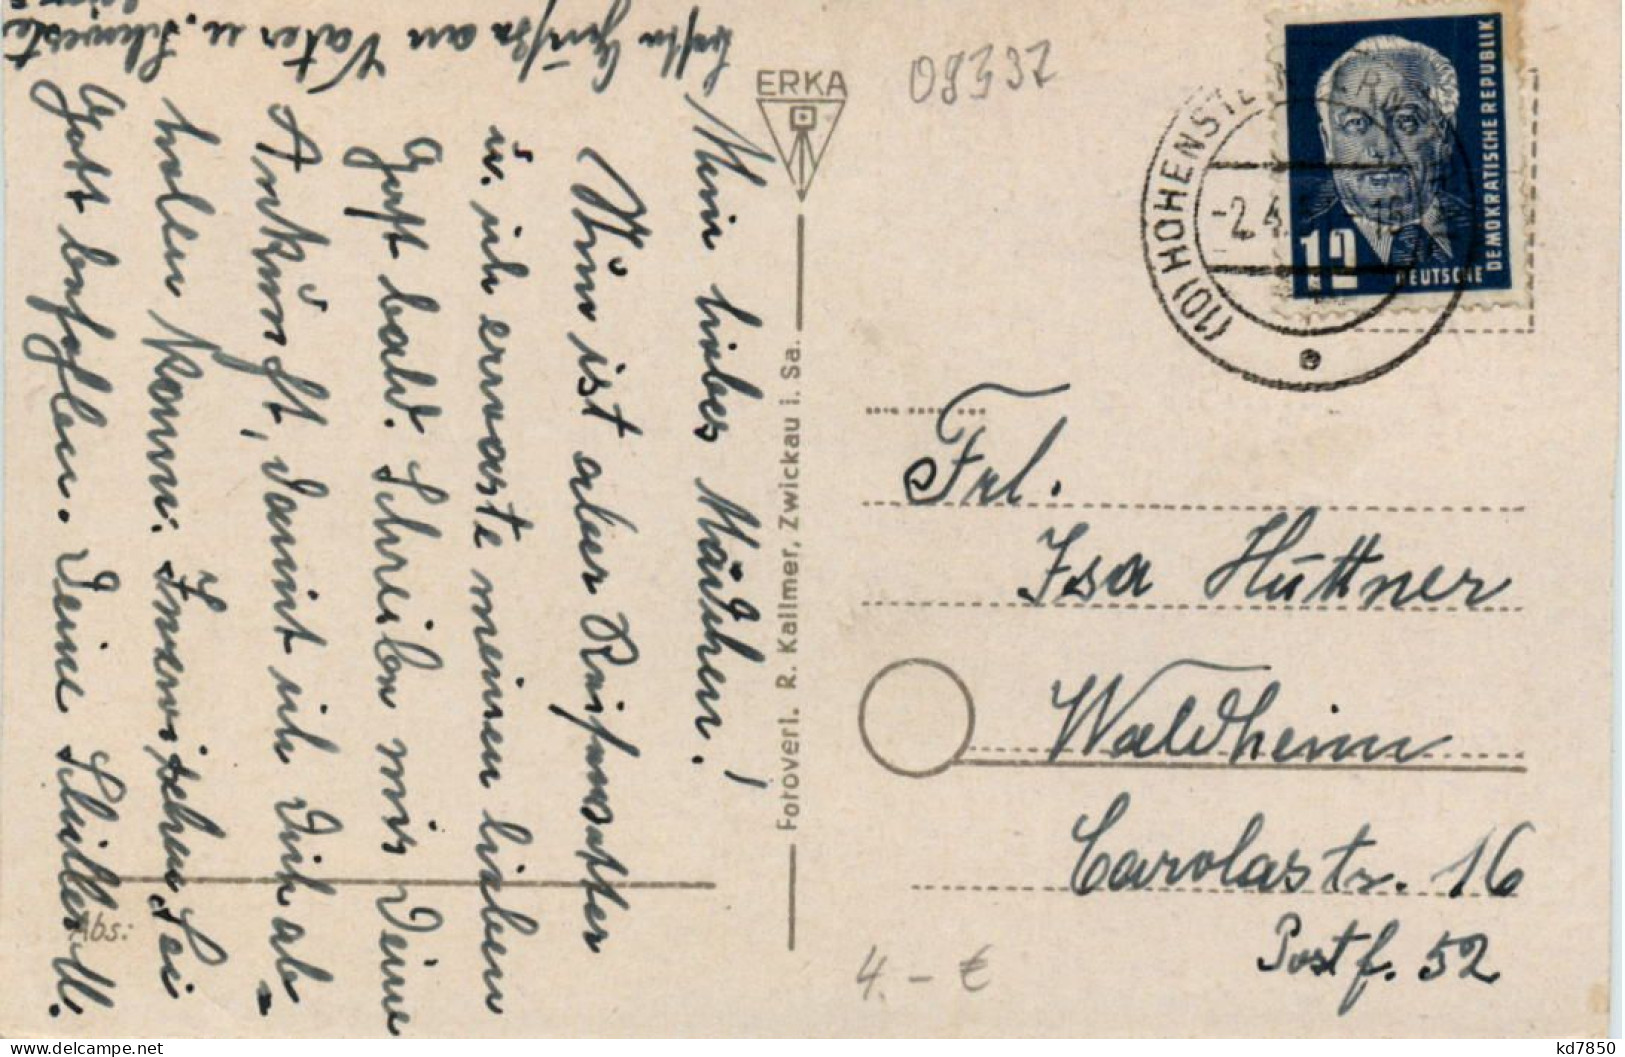 Mein liebes Mädchen!
Nun ist aber Reisewetter
u. ich erwarte meinen lieben
Gast bald. Schreibe mir Deine
Ankunft, damit ich Dich ab-
holen kann. Inzwischen sei
Gott befohlen. Deine Schüller M.
Grüße an Vater u. Schwester
Abs:
ERKA
Fotoverl. R. Kallmer, Zwickau i. Sa.
09337
(10) HOHENSTEIN-ERNSTTHAL
-2.4.5
12
DEUTSCHE
DEMOKRATISCHE REPUBLIK
Frl.
Isa Hüttner
Waldheim
Carolastr. 16
Postf. 52
4.- €
kd7850